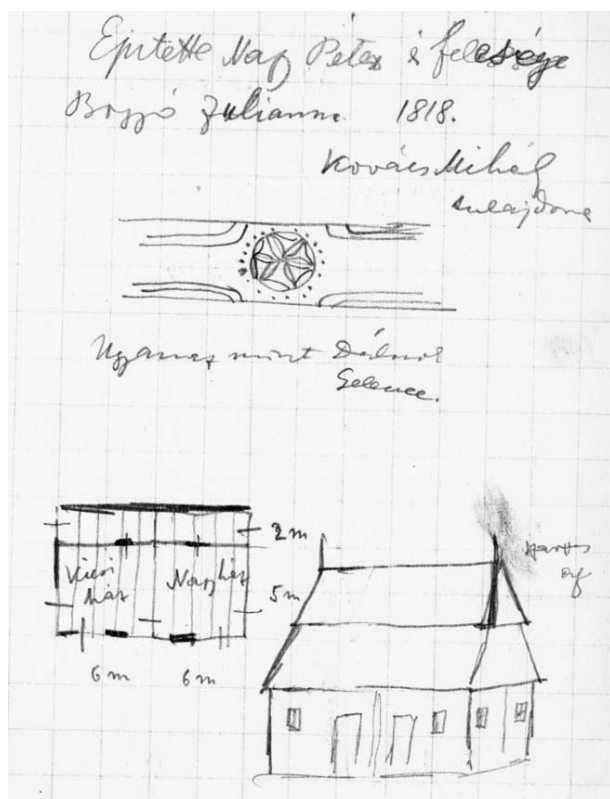 Epitette Nagy Péter és felesége
Bogyó Julianna 1818.
Kovács Mihály
tulajdona
Ugyanaz mint Dálnok
Gelence.
2 m
Kicsi ház
Nagy ház
5 m
6 m 6 m